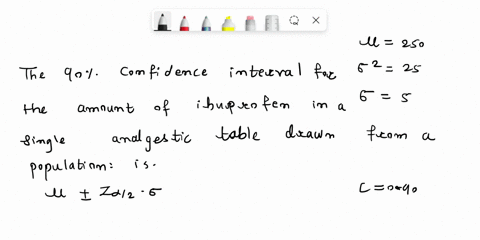 μ = 250
The 90% confidence interval for
σ² = 25
the amount of ibuprofen in a
σ = 5
single analgestic table drawn from a
population: is.
μ ± Zα/2 · σ
C = 0.90